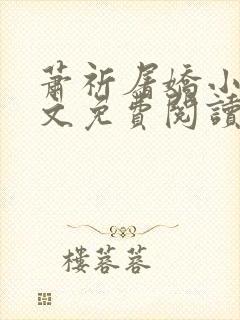 蕭祈屠嬌小
文免費閱讀
樓蓉蓉